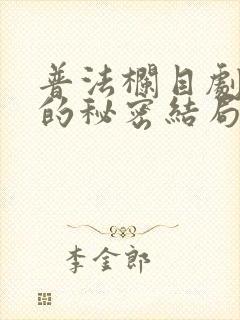 普法欄目劇
的秘密結局
李金郎